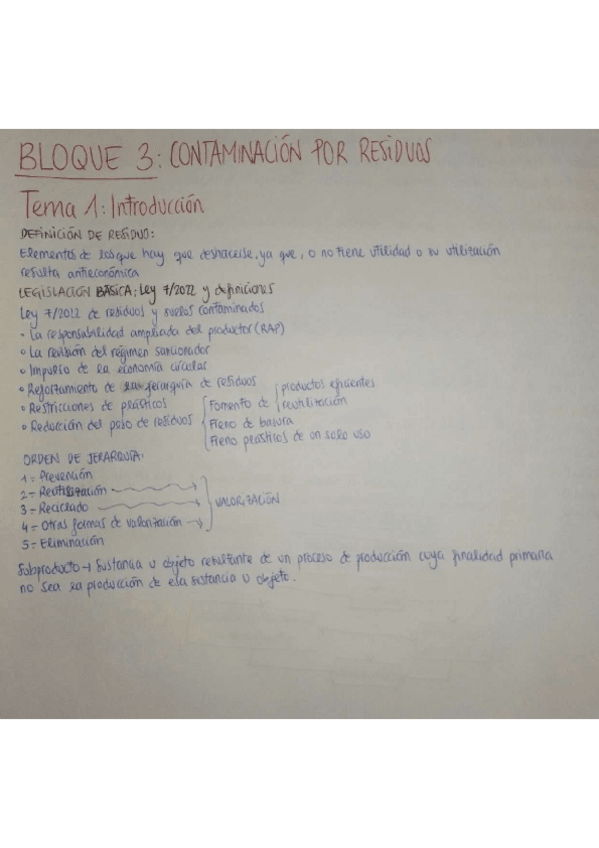 BLOQUE 3: CONTAMINACIÓN POR RESIDUOS
Tema 1: Introducción
DEFINICIÓN DE RESIDUO:
Elementos de los que hay que deshacerse, ya que, o no tiene utilidad o su utilización
resulta antieconómica
LEGISLACIÓN BÁSICA: Ley 7/2022 y definiciones
Ley 7/2022 de residuos y suelos contaminados
• La responsabilidad ampliada del productor (RAP)
• La revisión del régimen sancionador
• Impulso de la economía circular
• Reforzamiento de la jerarquía de residuos
• Restricciones de plásticos
• Reducción del peso de residuos { Fomento de { productos eficientes
reutilización
Freno de basura
Freno plásticos de un solo uso
ORDEN DE JERARQUÍA:
1 = Prevención
2 = Reutilización
3 = Reciclado
4 = Otras formas de valorización → } VALORIZACIÓN
5 = Eliminación
Subproducto → Sustancia u objeto resultante de un proceso de producción cuya finalidad primaria
no sea la producción de esa sustancia u objeto.